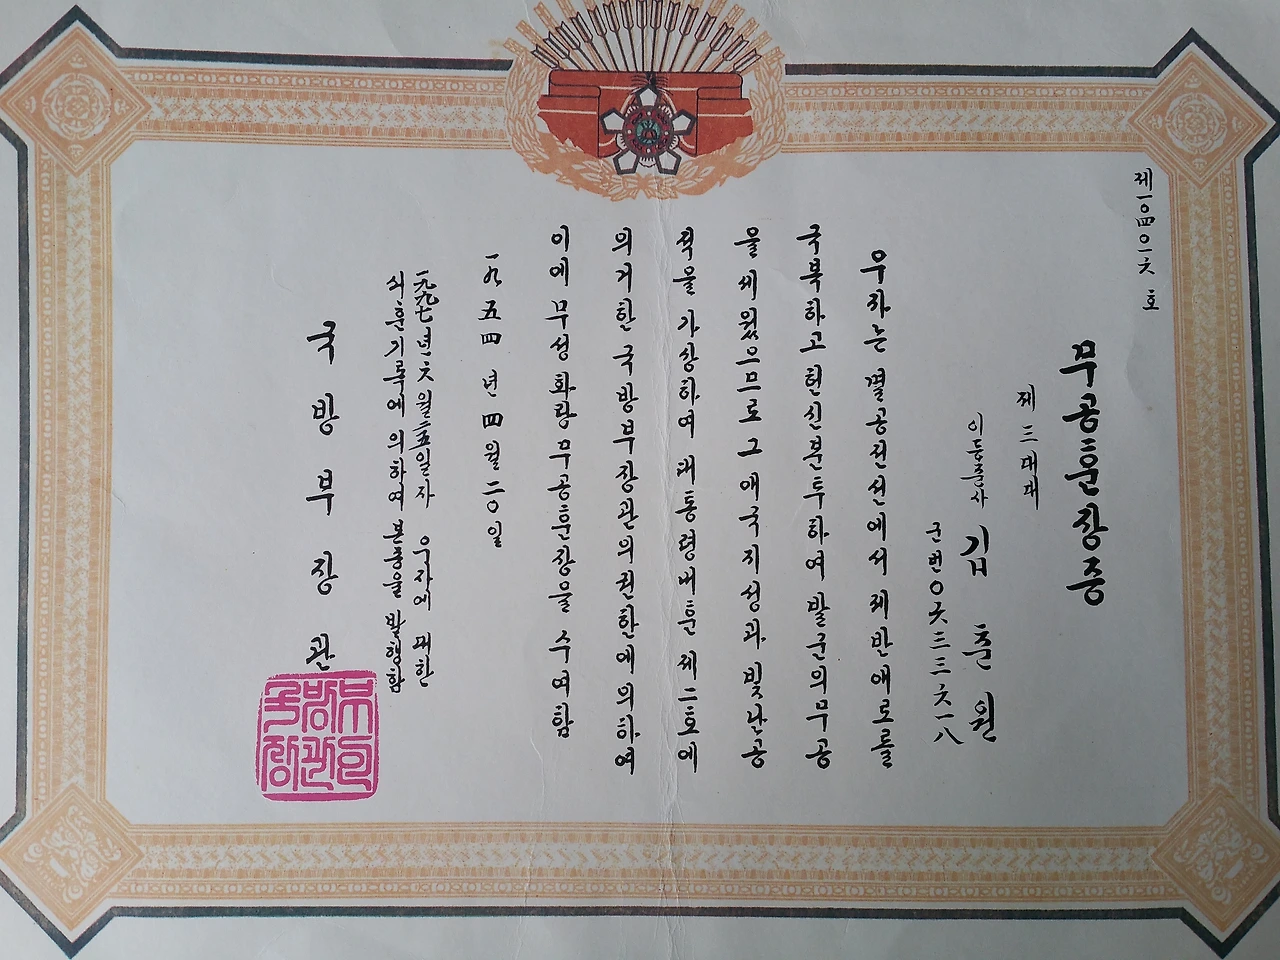 제一〇四〇一六 호
무공훈장증
제 三 대대
이등중사 김 춘 원
군번〇六三三六一八
우자는 멸공전선에서 제반애로를
극복하고 헌신분투하여 발군의무공
을 세웠으므로 그 애국지성과 빛난공
적을 가상하여 대통령내훈 제二호에
의거한 국방부장관의권한에의하여
이에 무성화랑무공훈장을 수여함
一九五四 년 四월 二〇일
一九九七년 六월 二五일자 우자에 대한
서훈기록에 의하여 본증을 발행함
국 방 부 장 관
국방부
장관인